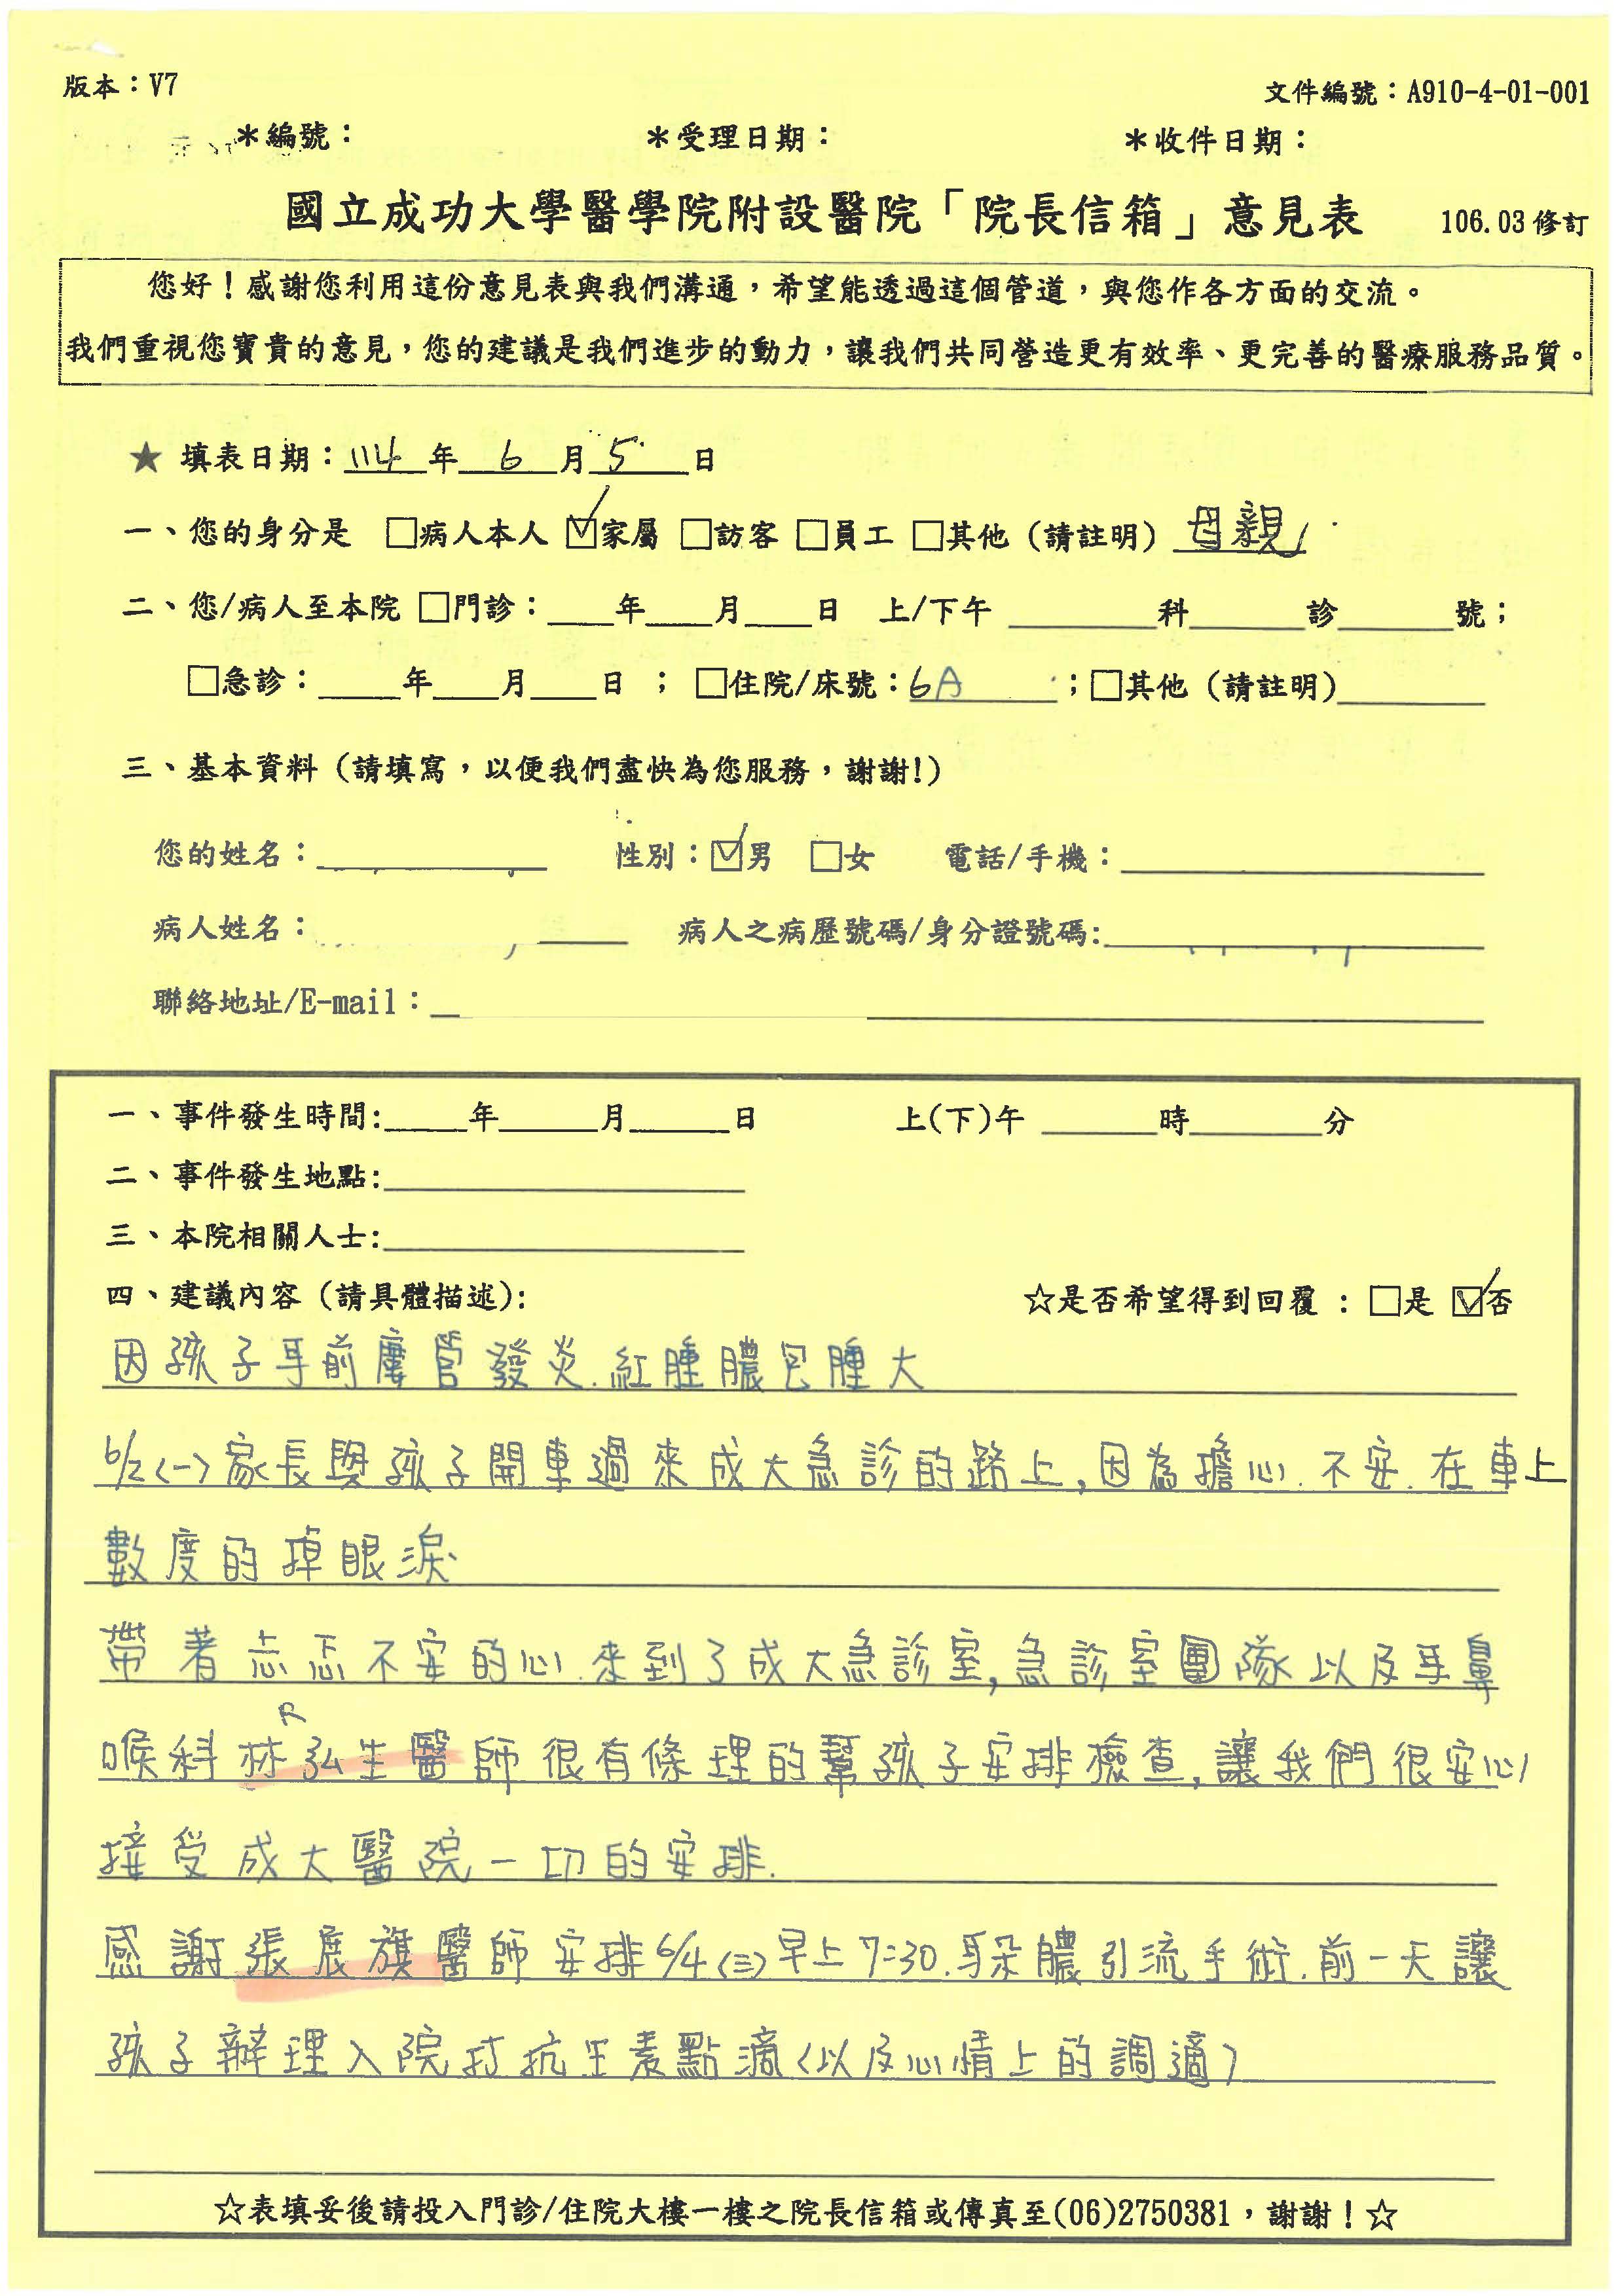 版本：V7
文件編號：A910-4-01-001
＊編號： ＊受理日期： ＊收件日期：
國立成功大學醫學院附設醫院「院長信箱」意見表 106.03修訂
您好！感謝您利用這份意見表與我們溝通，希望能透過這個管道，與您作各方面的交流。
我們重視您寶貴的意見，您的建議是我們進步的動力，讓我們共同營造更有效率、更完善的醫療服務品質。
★ 填表日期：114年6月5日
一、您的身分是 □病人本人 ☑家屬 □訪客 □員工 □其他（請註明）母親
二、您/病人至本院 □門診：___年___月___日 上/下午 ______科______診______號；
□急診：____年___月___日 ； □住院/床號：6A ；□其他（請註明）______
三、基本資料（請填寫，以便我們盡快為您服務，謝謝!）
您的姓名：______ 性別：☑男 □女 電話/手機：______
病人姓名： ______ 病人之病歷號碼/身分證號碼:______
聯絡地址/E-mail：______
一、事件發生時間:____年____月____日 上(下)午 ____時____分
二、事件發生地點:______
三、本院相關人士:______
四、建議內容（請具體描述）: ☆是否希望得到回覆：□是 ☑否
因孩子耳前廔管發炎.紅腫膿包腫大
6/2<一>家長與孩子開車過來成大急診的路上,因為擔心.不安.在車上
數度的掉眼淚
帶著忐忑不安的心.來到了成大急診室,急診室團隊以及耳鼻
R
喉科林弘生醫師很有條理的幫孩子安排檢查,讓我們很安心
接受成大醫院一切的安排.
感謝張展旗醫師安排6/4<三>早上7:30.耳朵膿引流手術.前一天讓
孩子辦理入院打抗生素點滴<以及心情上的調適>
☆表填妥後請投入門診/住院大樓一樓之院長信箱或傳真至(06)2750381，謝謝！☆